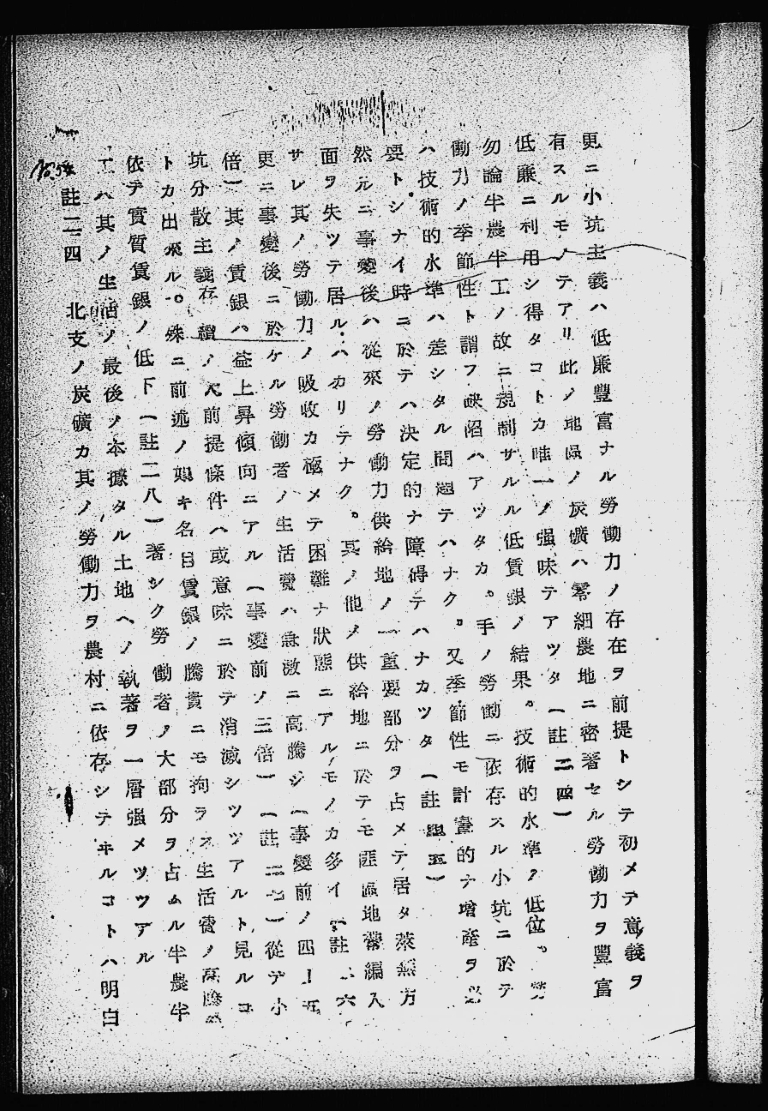 更ニ小坑主義ハ低廉豐富ナル勞働力ノ存在ヲ前提トシテ初メテ意義ヲ
有スルモノテアリ此ノ地區ノ炭礦ハ零細農地ニ密著セル勞働力ヲ豐富
低廉ニ利用シ得タコトカ唯一ノ强味テアツタ(註二四)
勿論半農半工ノ故ニ規制サルル低賃銀ノ結果。技術的水準ノ低位。勞
働力ノ季節性ト謂フ缺陷ハアツタカ。手ノ勞働ニ依存スル小坑ニ於テ
ハ技術的水準ハ差シタル問題テハナク。又季節性モ計畫的ナ增產ヲ必
要トシナイ時ニ於テハ決定的ナ障碍テハナカツタ(註五)
然ルニ事變後ハ從來ノ勞働力供給地ノ一重要部分ヲ占メテ居タ萊蕪方
面ヲ失ツテ居ルハカリテナク。其ノ他ノ供給地ニ於テモ匪區地帶編入
サレ其ノ勞働力ノ吸收カ極メテ困難ナ狀態ニアルモノカ多イ(註六
更ニ事變後ニ於ケル勞働者ノ生活費ハ急激ニ高騰シ(事變前ノ四ー五
倍)其ノ賃銀ハ益上昇傾向ニアル(事變前ノ三倍)(註二七)從テ小
坑分散主義存續ノ大前提條件ハ或意味ニ於テ消滅シツツアルト見ルコ
トカ出來ル。殊ニ前述ノ如キ名目賃銀ノ騰貴ニモ拘ラス生活費ノ高騰
依テ實質賃銀ノ低下(註二八)著シク勞働者ノ大部分ヲ占ムル半農半
工ハ其ノ生活ノ最後ノ本據タル土地ヘノ執著ヲ一層强メツツアル
註二四 北支ノ炭礦カ其ノ勞働力ヲ農村ニ依存シテヰルコトハ明白